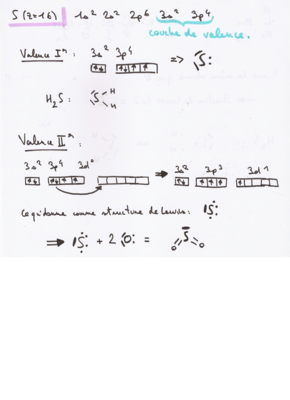 S (Z=16) 1s² 2s² 2p⁶ 3s² 3p⁴
couche de valence.
Valence I: 3s² 3p⁴
=> S:
H₂S: S H H
Valence II:
3s² 3p⁴ 3d⁰ → 3s² 3p³ 3d¹
Ce qui donne comme structure de Lewis: |S:
=> |S: + 2 O: = O S O